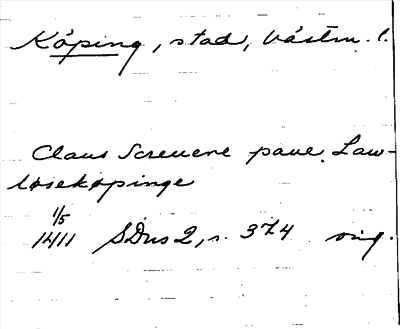 Köping, stad, Västm. l.
Claus Screuene paue Law-
løsekøpinge
1/5
1411 SDns 2, s. 374 orig.